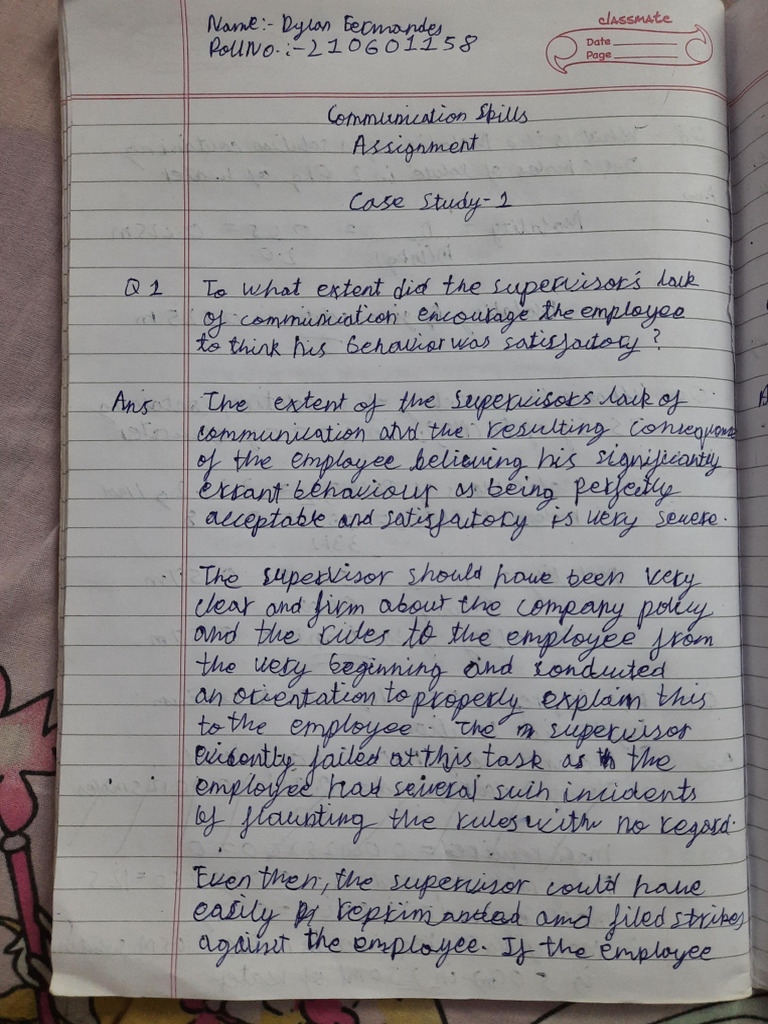 Name:- Dylan Fernandes
Roll No.:-210601158
classmate
Date
Page
Communication Skills
Assignment
Case Study-1
Q1 To what extent did the supervisor's lack
of communication encourage the employee
to think his behavior was satisfactory?
Ans The extent of the supervisors lack of
communication and the resulting consequence
of the employee believing his significantly
errant behaviour as being perfectly
acceptable and satisfactory is very severe.
The supervisor should have been very
clear and firm about the company policy
and the rules to the employee from
the very beginning and conducted
an orientation to properly explain this
to the employee. The supervisor
evidently failed at this task as the
employee had several such incidents
of flaunting the rules with no regard.
Even then, the supervisor could have
easily reprimanded and filed strikes
against the employee. If the employee